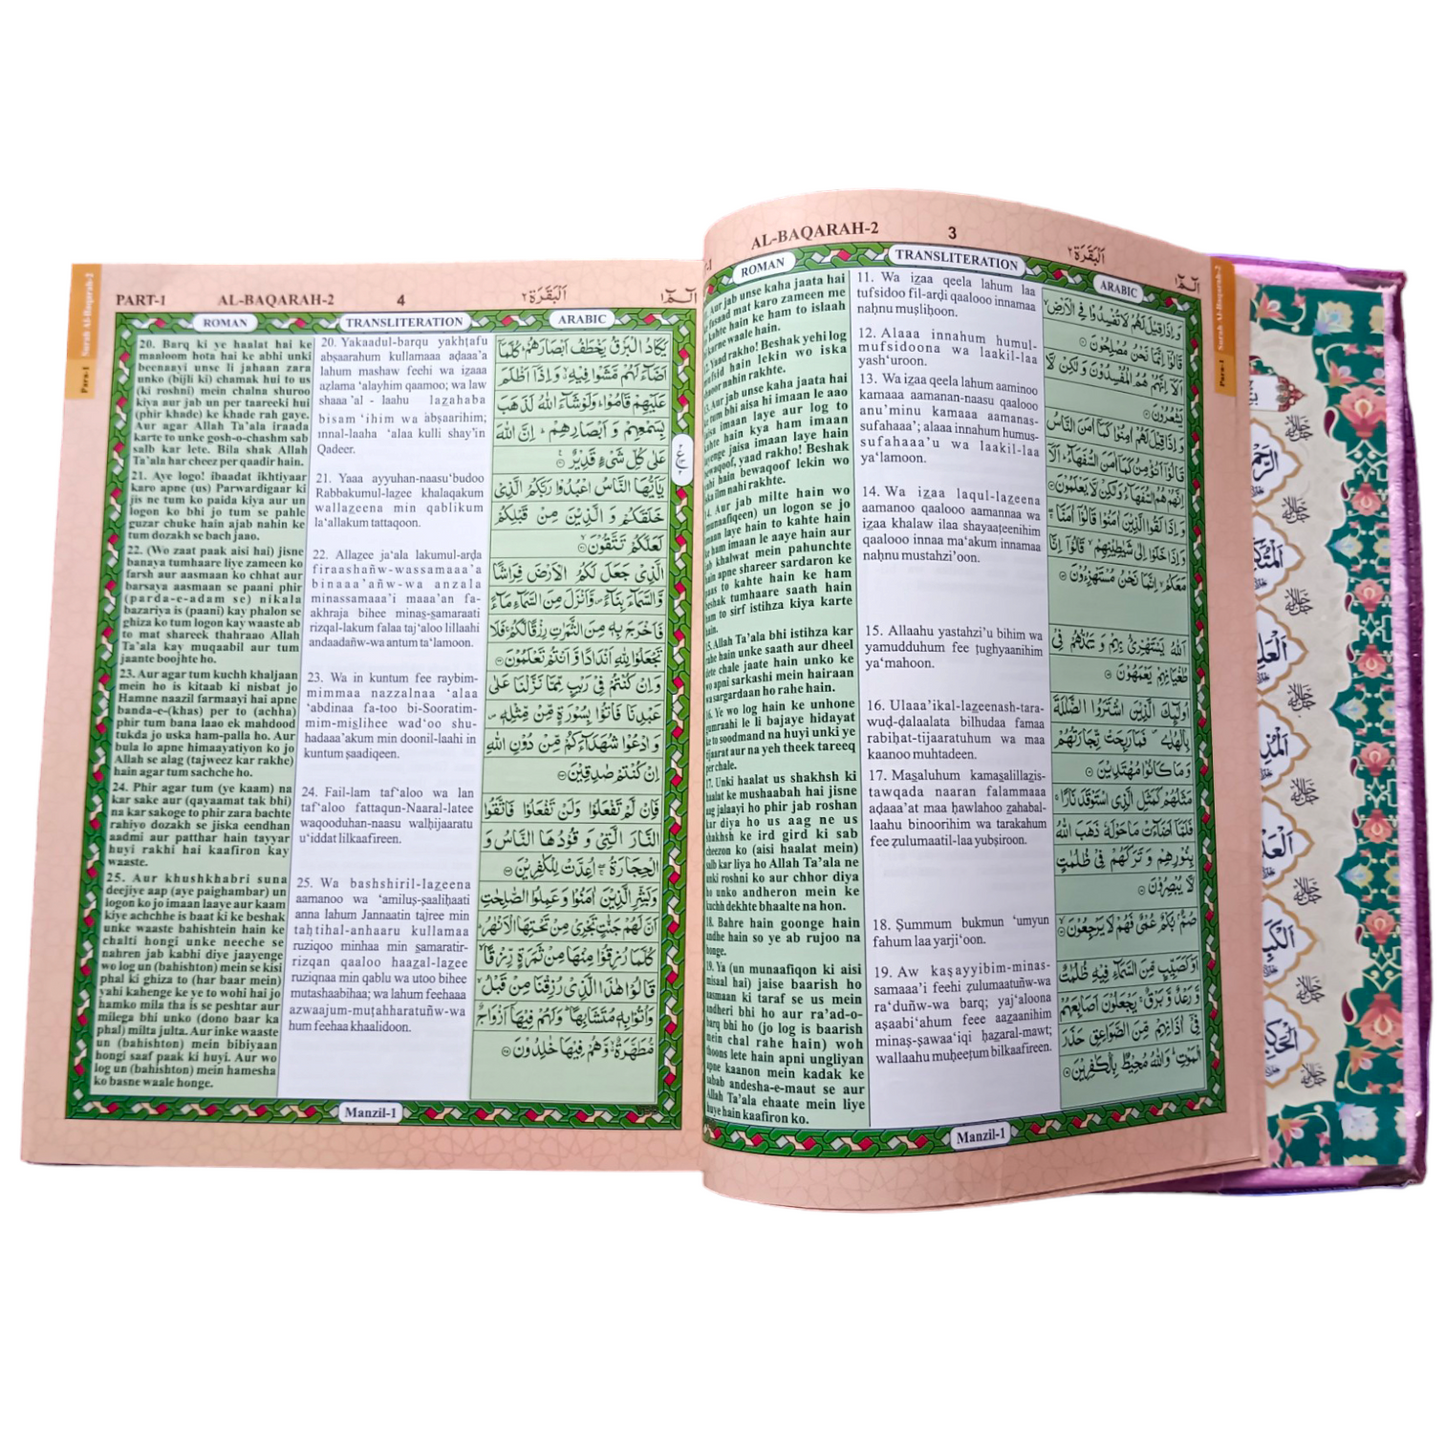 PART-1 AL-BAQARAH-2 4 اَلْبَقَرَة ٢ الٓمّٓ ١
Para-1 Surah Al-Baqarah-2
ROMAN
20. Barq ki ye haalat hai ke
maaloom hota hai ke abhi unki
beenaayi unse li jahaan zara
unko (bijli ki) chamak hui to us
(ki roshni) mein chalna shuroo
kiya aur jab un per taareeki hui
(phir khade) ke khade rah gaye.
Aur agar Allah Ta'ala iraada
karte to unke gosh-o-chashm sab
salb kar lete. Bila shak Allah
Ta'ala har cheez per qaadir hain.
21. Aye logo! ibaadat ikhtiyaar
karo apne (us) Parwardigaar ki
jis ne tum ko paida kiya aur un
logon ko bhi jo tum se pahle
guzar chuke hain ajab nahin ke
tum dozakh se bach jaao.
22. (Wo zaat paak aisi hai) jisne
banaya tumhaare liye zameen ko
farsh aur aasmaan ko chhat aur
barsaya aasmaan se paani phir
(parda-e-adam se) nikala
bazariya is (paani) kay phalon se
ghiza ko tum logon kay waaste ab
to mat shareek thahraao Allah
Ta'ala kay muqaabil aur tum
jaante boojhte ho.
23. Aur agar tum kuchh khaljaan
mein ho is kitaab ki nisbat jo
Hamne naazil farmaayi hai apne
banda-e-(khas) per to (achha)
phir tum bana laao ek mahdood
tukda jo uska ham-palla ho. Aur
bula lo apne himaayatiyon ko jo
Allah se alag (tajweez kar rakhe)
hain agar tum sachche ho.
24. Phir agar tum (ye kaam) na
kar sake aur (qayaamat tak bhi)
na kar sakoge to phir zara bachte
rahiyo dozakh se jiska eendhan
aadmi aur patthar hain tayyar
huyi rakhi hai kaafiron kay
waaste.
25. Aur khushkhabri suna
deejiye aap (aye paighambar) un
logon ko jo imaan laaye aur kaam
kiye achchhe is baat ki ke beshak
unke waaste bahishtein hain ke
chalti hongi unke neeche se
nahren jab kabhi diye jaayenge
wo log un (bahishton) mein se kisi
phal ki ghiza to (har baar mein)
yahi kahenge ke ye to wohi hai jo
hamko mila tha is se peshtar aur
milega bhi unko (dono baar ka
phal) milta julta. Aur inke waaste
un (bahishton) mein bibiyaan
hongi saaf paak ki huyi. Aur wo
log un (bahishton) mein hamesha
ko basne waale honge.
TRANSLITERATION
20. Yakaadul-barqu yakhṭafu
abṣaarahum kullamaaa aḍaaa'a
lahum mashaw feehi wa iẕaaa
aẓlama 'alayhim qaamoo; wa law
shaaa'al - laahu laẕahaba
bisam'ihim wa abṣaarihim;
innal-laaha 'alaa kulli shay'in
Qadeer.
21. Yaaa ayyuhan-naasu'budoo
Rabbakumul-laẕee khalaqakum
wallaẕeena min qablikum
la'allakum tattaqoon.
22. Allaẕee ja'ala lakumul-arḍa
firaashañw-wassamaaa'a
binaaa'añw-wa anzala
minassamaaa'i maaa'an fa-
akhraja bihee minas̱-s̱amaraati
rizqal-lakum falaa taj'aloo lillaahi
andaadañw-wa antum ta'lamoon.
23. Wa in kuntum fee raybim-
mimmaa nazzalnaa 'alaa
'abdinaa fa-too bi-Sooratim-
mim-mis̱lihee wad'oo shu-
hadaaa'akum min doonil-laahi in
kuntum ṣaadiqeen.
24. Fail-lam taf'aloo wa lan
taf'aloo fattaqun-Naaral-latee
waqooduhan-naasu walḥijaaratu
u'iddat lilkaafireen.
25. Wa bashshiril-laẕeena
aamanoo wa 'amiluṣ-ṣaaliḥaati
anna lahum Jannaatin tajree min
taḥtihal-anhaaru kullamaa
ruziqoo minhaa min s̱amaratir-
rizqan qaaloo haaẕal-laẕee
ruziqnaa min qablu wa utoo bihee
mutashaabihaa; wa lahum feehaaa
azwaajum-muṭahharatuñw-wa
hum feehaa khaalidoon.
ARABIC
يَكَادُ الْبَرْقُ يَخْطَفُ اَبْصَارَهُمْ ؕ كُلَّمَاۤ
اَضَآءَ لَهُمْ مَّشَوْا فِيْهِ ۙ وَاِذَاۤ اَظْلَمَ
عَلَيْهِمْ قَامُوْا ؕ وَلَوْ شَآءَ اللّٰهُ لَذَهَبَ
بِسَمْعِهِمْ وَ اَبْصَارِهِمْ ؕ اِنَّ اللّٰهَ
عَلٰى كُلِّ شَىْءٍ قَدِيْرٌ
يٰۤاَيُّهَا النَّاسُ اعْبُدُوْا رَبَّكُمُ الَّذِىْ
خَلَقَكُمْ وَ الَّذِيْنَ مِنْ قَبْلِكُمْ
لَعَلَّكُمْ تَتَّقُوْنَ
الَّذِىْ جَعَلَ لَكُمُ الْاَرْضَ فِرَاشًا
وَّالسَّمَآءَ بِنَآءً ۪ وَّاَنْزَلَ مِنَ السَّمَآءِ مَآءً
فَاَخْرَجَ بِهٖ مِنَ الثَّمَرٰتِ رِزْقًا لَّكُمْ ۚ فَلَا
تَجْعَلُوْا لِلّٰهِ اَنْدَادًا وَّاَنْتُمْ تَعْلَمُوْنَ
وَاِنْ كُنْتُمْ فِىْ رَيْبٍ مِّمَّا نَزَّلْنَا عَلٰى
عَبْدِنَا فَاْتُوْا بِسُوْرَةٍ مِّنْ مِّثْلِهٖ
وَ ادْعُوْا شُهَدَآءَكُمْ مِّنْ دُوْنِ اللّٰهِ
اِنْ كُنْتُمْ صٰدِقِيْنَ
فَاِنْ لَّمْ تَفْعَلُوْا وَلَنْ تَفْعَلُوْا فَاتَّقُوا
النَّارَ الَّتِىْ وَقُوْدُهَا النَّاسُ وَ
الْحِجَارَةُ ۖۚ اُعِدَّتْ لِلْكٰفِرِيْنَ
وَبَشِّرِ الَّذِيْنَ اٰمَنُوْا وَعَمِلُوا الصّٰلِحٰتِ
اَنَّ لَهُمْ جَنّٰتٍ تَجْرِىْ مِنْ تَحْتِهَا الْاَنْهٰرُ ؕ
كُلَّمَا رُزِقُوْا مِنْهَا مِنْ ثَمَرَةٍ رِّزْقًا ۙ
قَالُوْا هٰذَا الَّذِىْ رُزِقْنَا مِنْ قَبْلُ ۙ
وَاُتُوْا بِهٖ مُتَشَابِهًا ؕ وَلَهُمْ فِيْهَاۤ اَزْوَاجٌ
مُّطَهَّرَةٌ ۙ وَّهُمْ فِيْهَا خٰلِدُوْنَ
Manzil-1
AL-BAQARAH-2 3 اَلْبَقَرَة ٢ الٓمّٓ ١
ROMAN
Aur jab unse kaha jaata hai
fasaad mat karo zameen me
kahte hain ke ham to islaah
karne waale hain.
Yaad rakho! Beshak yehi log
hain lekin wo iska
nahin rakhte.
Aur jab unse kaha jaata hai
tum bhi aisa hi imaan le aao
jaisa imaan laye aur log to
kahte hain kya ham imaan
jaisa imaan laye hain
bewaqoof, yaad rakho! Beshak
yahi hain bewaqoof lekin wo
ilm nahi rakhte.
14. Aur jab milte hain wo
(munaafiqeen) un logon se jo
imaan laye hain to kahte hain
ke ham imaan le aaye hain aur
jab khalwat mein pahunchte
hain apne shareer sardaron ke
paas to kahte hain ke ham
beshak tumhaare saath hain
ham to sirf istihza kiya karte
hain.
15. Allah Ta'ala bhi istihza kar
rahe hain unke saath aur dheel
dete chale jaate hain unko ke
wo apni sarkashi mein hairaan
wa sargardaan ho rahe hain.
16. Ye wo log hain ke unhone
gumraahi le li bajaye hidayat
ke to soodmand na huyi unki ye
tijaarat aur na yeh theek tareeq
per chale.
17. Unki haalat us shakhsh ki
haalat ke mushaabah hai jisne
aag jalaayi ho phir jab roshan
kar diya ho us aag ne us
shakhsh ke ird gird ki sab
cheezon ko (aisi haalat mein)
salb kar liya ho Allah Ta'ala ne
unki roshni ko aur chhor diya
ho unko andheron mein ke
kuchh dekhte bhaalte na hon.
18. Bahre hain goonge hain
andhe hain so ye ab rujoo na
honge.
19. Ya (un munaafiqon ki aisi
misaal hai) jaise baarish ho
aasmaan ki taraf se us mein
andheri bhi ho aur ra'ad-o-
barq bhi ho (jo log is baarish
mein chal rahe hain) woh
thoons lete hain apni ungliyan
apne kaanon mein kadak ke
sabab andesha-e-maut se aur
Allah Ta'ala ehaate mein liye
huye hain kaafiron ko.
TRANSLITERATION
11. Wa iẕaa qeela lahum laa
tufsidoo fil-arḍi qaalooo innamaa
naḥnu muṣliḥoon.
12. Alaaa innahum humul-
mufsidoona wa laakil-laa
yash'uroon.
13. Wa iẕaa qeela lahum aaminoo
kamaaa aamanan-naasu qaalooo
anu'minu kamaaa aamanas-
sufahaaa'; alaaa innahum humus-
sufahaaa'u wa laakil-laa
ya'lamoon.
14. Wa iẕaa laqul-laẕeena
aamanoo qaalooo aamannaa wa
iẕaa khalaw ilaa shayaaṭeenihim
qaalooo innaa ma'akum innamaa
naḥnu mustahzi'oon.
15. Allaahu yastahzi'u bihim wa
yamudduhum fee ṭughyaanihim
ya'mahoon.
16. Ulaaa'ikal-laẕeenash-tara-
wuḍ-ḍalaalata bilhudaa famaa
rabiḥat-tijaaratuhum wa maa
kaanoo muhtadeen.
17. Mas̱aluhum kamas̱alillaẕis-
tawqada naaran falammaaa
aḍaaa'at maa ḥawlahoo ẕahabal-
laahu binoorihim wa tarakahum
fee ẓulumaatil-laa yubṣiroon.
18. Ṣummum bukmun 'umyun
fahum laa yarji'oon.
19. Aw kaṣayyibim-minas-
samaaa'i feehi ẓulumaatuñw-wa
ra'duñw-wa barq; yaj'aloona
aṣaabi'ahum feee aaẕaanihim
minaṣ-ṣawaa'iqi ḥaẕaral-mawt;
wallaahu muḥeeṭum bilkaafireen.
ARABIC
وَ اِذَا قِيْلَ لَهُمْ لَا تُفْسِدُوْا فِى الْاَرْضِ ۙ
قَالُوْۤا اِنَّمَا نَحْنُ مُصْلِحُوْنَ
اَلَاۤ اِنَّهُمْ هُمُ الْمُفْسِدُوْنَ وَلٰكِنْ لَّا
يَشْعُرُوْنَ
وَ اِذَا قِيْلَ لَهُمْ اٰمِنُوْا كَمَاۤ اٰمَنَ النَّاسُ
قَالُوْۤا اَنُؤْمِنُ كَمَاۤ اٰمَنَ السُّفَهَآءُ ؕ اَلَاۤ
اِنَّهُمْ هُمُ السُّفَهَآءُ وَلٰكِنْ لَّا يَعْلَمُوْنَ
وَ اِذَا لَقُوا الَّذِيْنَ اٰمَنُوْا قَالُوْۤا اٰمَنَّا ۖۚ
وَ اِذَا خَلَوْا اِلٰى شَيٰطِيْنِهِمْ ۙ قَالُوْۤا اِنَّا
مَعَكُمْ ۙ اِنَّمَا نَحْنُ مُسْتَهْزِءُوْنَ
اَللّٰهُ يَسْتَهْزِئُ بِهِمْ وَ يَمُدُّهُمْ فِىْ
طُغْيَانِهِمْ يَعْمَهُوْنَ
اُولٰٓئِكَ الَّذِيْنَ اشْتَرَوُا الضَّلٰلَةَ
بِالْهُدٰى ۪ فَمَا رَبِحَتْ تِّجَارَتُهُمْ
وَ مَا كَانُوْا مُهْتَدِيْنَ
مَثَلُهُمْ كَمَثَلِ الَّذِى اسْتَوْقَدَ نَارًا ۚ
فَلَمَّاۤ اَضَآءَتْ مَا حَوْلَهٗ ذَهَبَ اللّٰهُ
بِنُوْرِهِمْ وَ تَرَكَهُمْ فِىْ ظُلُمٰتٍ
لَّا يُبْصِرُوْنَ
صُمٌّۢ بُكْمٌ عُمْىٌ فَهُمْ لَا يَرْجِعُوْنَ
اَوْ كَصَيِّبٍ مِّنَ السَّمَآءِ فِيْهِ ظُلُمٰتٌ
وَّ رَعْدٌ وَّ بَرْقٌ ۚ يَجْعَلُوْنَ اَصَابِعَهُمْ
فِىْۤ اٰذَانِهِمْ مِّنَ الصَّوَاعِقِ حَذَرَ
الْمَوْتِ ؕ وَاللّٰهُ مُحِيْطٌۢ بِالْكٰفِرِيْنَ
Manzil-1
Para-1 Surah Al-Baqarah-2